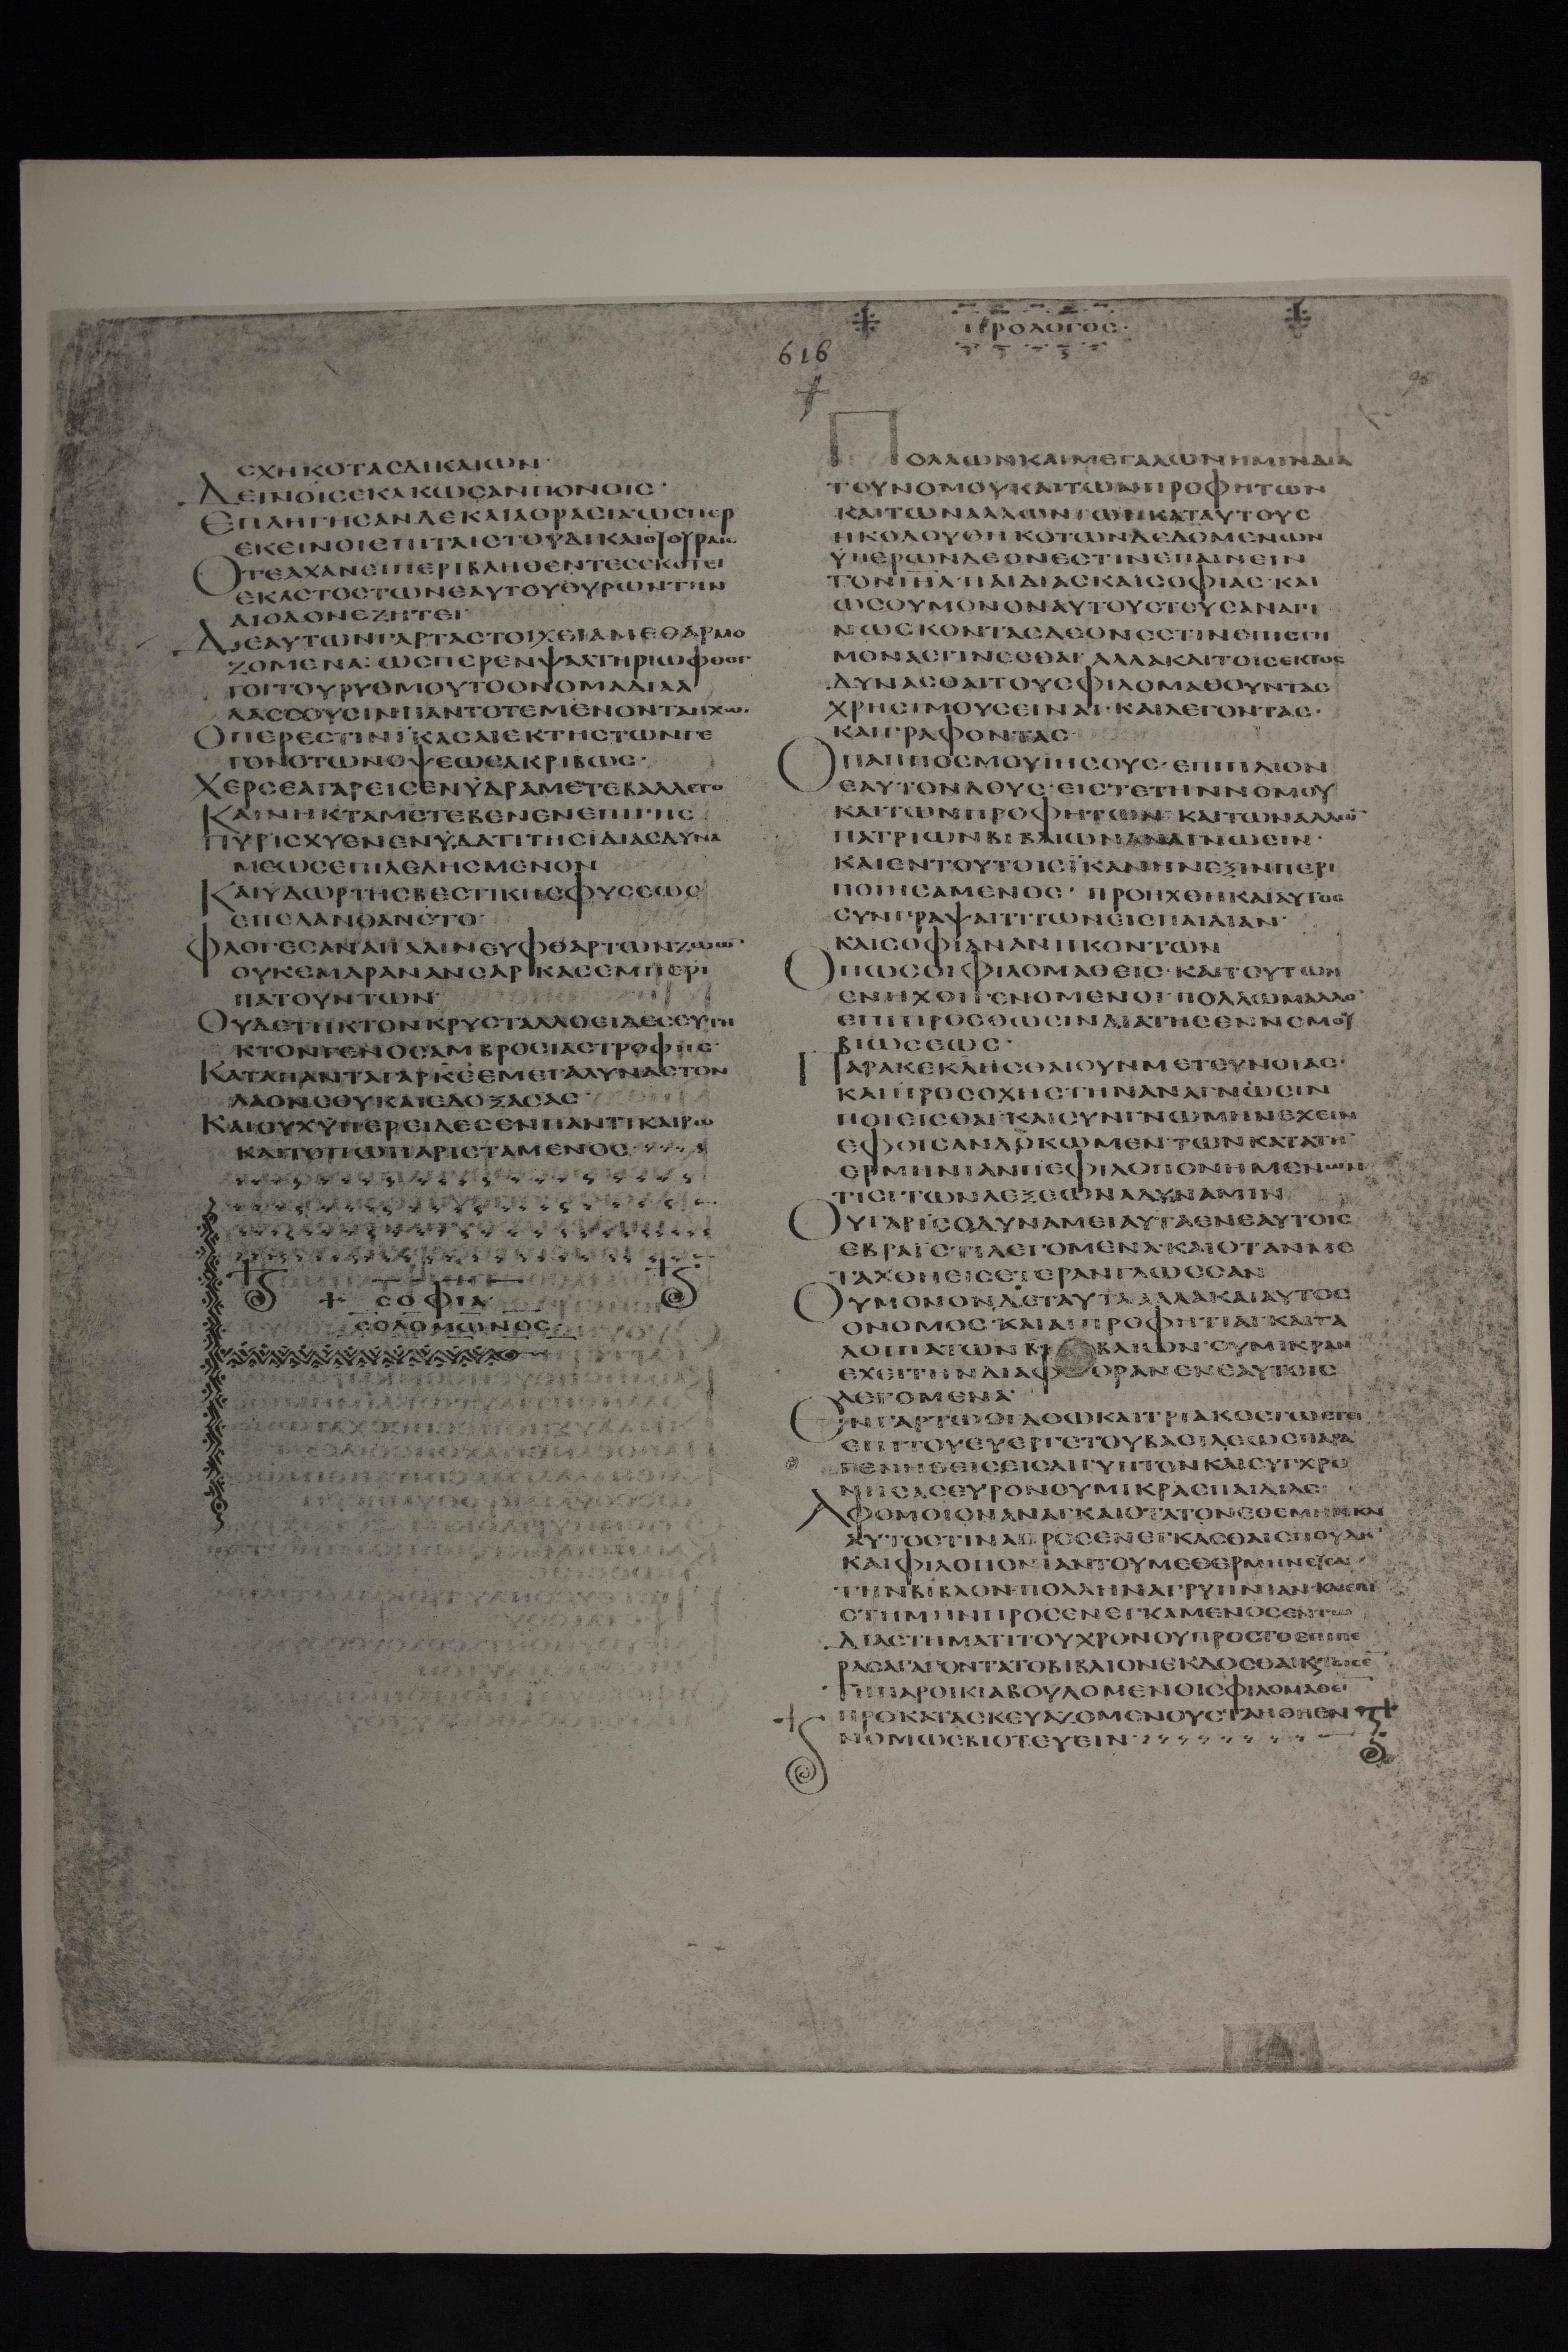 ΠΡΟΛΟΓΟΣ·
616
95
ϹΧΗΚΟΤΑϹΔΙΚΑΙΩΝ·
ΔΕΙΝΟΙϹΕΚΑΚΩϹΑΝΠΟΝΟΙϹ·
ΕΠΛΗΓΗϹΑΝΔΕΚΑΙΑΟΡΑϹΙΑΩϹΠΕΡ
ΕΚΕΙΝΟΙΕΠΙΤΑΙϹΤΟΥΔΙΚΑΙΟΥΘΥΡΑΙϹ
ΟΤΕΑΧΑΝΕΙΠΕΡΙΒΛΗΘΕΝΤΕϹϹΚΟΤΕΙ
ΕΚΑϹΤΟϹΤΩΝΕΑΥΤΟΥΘΥΡΩΝΤΗΝ
ΔΙΟΔΟΝΕΖΗΤΕΙ·
ΔΙΕΑΥΤΩΝΓΑΡΤΑϹΤΟΙΧΕΙΑΜΕΘΑΡΜΟ
ΖΟΜΕΝΑ: ΩϹΠΕΡΕΝΨΑΛΤΗΡΙΩΦΘΟΓ
ΓΟΙΤΟΥΡΥΘΜΟΥΤΟΟΝΟΜΑΔΙΑΛ
ΛΑϹϹΟΥϹΙΝΠΑΝΤΟΤΕΜΕΝΟΝΤΑΗΧΩ·
ΟΠΕΡΕϹΤΙΝΪΚΑϹΑΙΕΚΤΗϹΤΩΝΓΕ
ΓΟΝΟΤΩΝΟΨΕΩϹΑΚΡΙΒΩϹ·
ΧΕΡϹΕΑΓΑΡΕΙϹΕΝΫΔΡΑΜΕΤΕΒΑΛΛΕΤΟ
ΚΑΙΝΗΚΤΑΜΕΤΕΒΕΝΕΝΕΠΙΓΗϹ
ΠΥΡΙϹΧΥΘΕΝΕΝΫΔΑΤΙΤΗϹΙΔΙΑϹΔΥΝΑ
ΜΕΩϹΕΠΙΛΕΛΗϹΜΕΝΟΝ
ΚΑΙΫΔΩΡΤΗϹϹΒΕϹΤΙΚΗϹΦΥϹΕΩϹ
ΕΠΕΛΑΝΘΑΝΕΤΟ·
ΦΛΟΓΕϹΑΝΑΠΑΛΙΝΕΥΦΘΑΡΤΩΝΖΩΩΝ
ΟΥΚΕΜΑΡΑΝΑΝϹΑΡΚΑϹΕΜΠΕΡΙ
ΠΑΤΟΥΝΤΩΝ·
ΟΥΔΕΤΗΚΤΟΝΚΡΥϹΤΑΛΛΟΕΙΔΕϹΕΥΤΗ
ΚΤΟΝΓΕΝΟϹΑΜΒΡΟϹΙΑϹΤΡΟΦΗϹ·
ΚΑΤΑΠΑΝΤΑΓΑΡΚΕΕΜΕΓΑΛΥΝΑϹΤΟΝ
ΛΑΟΝϹΟΥΚΑΙΕΔΟΞΑϹΑϹ·
ΚΑΙΟΥΧΫΠΕΡΕΙΔΕϹΕΝΠΑΝΤΙΚΑΙΡΩ
ΚΑΙΤΟΠΩΠΑΡΙϹΤΑΜΕΝΟϹ
ϹΟΦΙΑ
ϹΟΛΟΜΩΝΟϹ
ΠΟΛΛΩΝΚΑΙΜΕΓΑΛΩΝΗΜΙΝΔΙΑ
ΤΟΥΝΟΜΟΥΚΑΙΤΩΝΠΡΟΦΗΤΩΝ
ΚΑΙΤΩΝΑΛΛΩΝΤΩΝΚΑΤΑΥΤΟΥϹ
ΗΚΟΛΟΥΘΗΚΟΤΩΝΔΕΔΟΜΕΝΩΝ
ΫΠΕΡΩΝΔΕΟΝΕϹΤΙΝΕΠΑΙΝΕΙΝ
ΤΟΝΙΗΛΠΑΙΔΙΑϹΚΑΙϹΟΦΙΑϹ·ΚΑΙ
ΩϹΟΥΜΟΝΟΝΑΥΤΟΥϹΤΟΥϹΑΝΑΓΙ
ΝΩϹΚΟΝΤΑϹΔΕΟΝΕϹΤΙΝΕΠΙϹΤΗ
ΜΟΝΑϹΓΙΝΕϹΘΑΙ·ΑΛΛΑΚΑΙΤΟΙϹΕΚΤΟϹ
ΔΥΝΑϹΘΑΙΤΟΥϹΦΙΛΟΜΑΘΟΥΝΤΑϹ
ΧΡΗϹΙΜΟΥϹΕΙΝΑΙ·ΚΑΙΛΕΓΟΝΤΑϹ·
ΚΑΙΓΡΑΦΟΝΤΑϹ·
ΟΠΑΠΠΟϹΜΟΥΙΗϹΟΥϹ·ΕΠΙΠΛΙΟΝ
ΕΑΥΤΟΝΔΟΥϹ·ΕΙϹΤΕΤΗΝΝΟΜΟΥ
ΚΑΙΤΩΝΠΡΟΦΗΤΩΝ·ΚΑΙΤΩΝΑΛΛΩ
ΠΑΤΡΙΩΝΒΙΒΛΙΩΝΑΝΑΓΝΩϹΙΝ·
ΚΑΙΕΝΤΟΥΤΟΙϹΪΚΑΝΗΝΕΞΙΝΠΕΡΙ
ΠΟΙΗϹΑΜΕΝΟϹ· ΠΡΟΗΧΘΗΚΑΙΑΥΤΟϹ
ϹΥΝΓΡΑΨΑΙΤΙΤΩΝΕΙϹΠΑΙΔΙΑΝ·
ΚΑΙϹΟΦΙΑΝΑΝΗΚΟΝΤΩΝ
ΟΠΩϹΟΙΦΙΛΟΜΑΘΕΙϹ·ΚΑΙΤΟΥΤΩΝ
ΕΝΗΧΟΙΓΕΝΟΜΕΝΟΙ·ΠΟΛΛΩΜΑΛΛΟ
ΕΠΙΠΡΟϹΘΩϹΙΝΔΙΑΤΗϹΕΝΝΟΜΟΥ
ΒΙΩϹΕΩϹ·
ΠΑΡΑΚΕΚΛΗϹΘΑΙΟΥΝΜΕΤΕΥΝΟΙΑϹ·
ΚΑΙΠΡΟϹΟΧΗϹΤΗΝΑΝΑΓΝΩϹΙΝ
ΠΟΙΕΙϹΘΑΙ·ΚΑΙϹΥΝΓΝΩΜΗΝΕΧΕΙΝ
ΕΦΟΙϹΑΝΔΟΚΩΜΕΝ·ΤΩΝΚΑΤΑΤΗ
ΕΡΜΗΝΙΑΝΠΕΦΙΛΟΠΟΝΗΜΕΝΩΝ
ΤΙϹΙΤΩΝΛΕΞΕΩΝΑΔΥΝΑΜΙΝ
ΟΥΓΑΡΪϹΟΔΥΝΑΜΕΙΑΥΤΑΕΝΕΑΥΤΟΙϹ
ΕΒΡΑΪϹΤΙΛΕΓΟΜΕΝΑ·ΚΑΙΟΤΑΝΜΕ
ΤΑΧΘΗΕΙϹΕΤΕΡΑΝΓΛΩϹϹΑΝ
ΟΥΜΟΝΟΝΔΕΤΑΥΤΑΑΛΛΑΚΑΙΑΥΤΟϹ
ΟΝΟΜΟϹ·ΚΑΙΑΙΠΡΟΦΗΤΙΑΙ·ΚΑΙΤΑ
ΛΟΙΠΑΤΩΝΒΙΒΛΙΩΝ·ΟΥΜΙΚΡΑΝ
ΕΧΕΙΤΗΝΔΙΑΦΟΡΑΝΕΝΕΑΥΤΟΙϹ
ΛΕΓΟΜΕΝΑ·
ΕΝΓΑΡΤΩΟΓΔΟΩΚΑΙΤΡΙΑΚΟϹΤΩΕΤΕΙ
ΕΠΙΤΟΥΕΥΕΡΓΕΤΟΥΒΑϹΙΛΕΩϹΠΑΡΑ
ΓΕΝΗΘΕΙϹΕΙϹΑΙΓΥΠΤΟΝΚΑΙϹΥΓΧΡΟ
ΝΙϹΑϹΕΥΡΟΝΟΥΜΙΚΡΑϹΠΑΙΔΙΑϹ
ΑΦΟΜΟΙΟΝΑΝΑΓΚΑΙΟΤΑΤΟΝΕΘΕΜΗΝΚΑΙ
ΑΥΤΟϹΤΙΝΑΠΡΟϹΕΝΕΓΚΑϹΘΑΙϹΠΟΥΔΗ
ΚΑΙΦΙΛΟΠΟΝΙΑΝΤΟΥΜΕΘΕΡΜΗΝΕΥϹΑΙ
ΤΗΝΒΙΒΛΟΝ·ΠΟΛΛΗΝΑΓΡΥΠΝΙΑΝ·ΚΑΙΕΠΙ
ϹΤΗΜΗΝΠΡΟϹΕΝΕΓΚΑΜΕΝΟϹΕΝΤΩ
ΔΙΑϹΤΗΜΑΤΙΤΟΥΧΡΟΝΟΥΠΡΟϹΤΟΕΠΙΠΕ
ΡΑϹΑΓΑΓΟΝΤΑΤΟΒΙΒΛΙΟΝΕΚΔΟϹΘΑΙΚϹ
ΤΗΠΑΡΟΙΚΙΑΒΟΥΛΟΜΕΝΟΙϹΦΙΛΟΜΑΘΕΙ
ΠΡΟΚΑΤΑϹΚΕΥΑΖΟΜΕΝΟΥϹΤΑΗΘΗΕΝ
ΝΟΜΩϹΒΙΟΤΕΥΕΙΝ